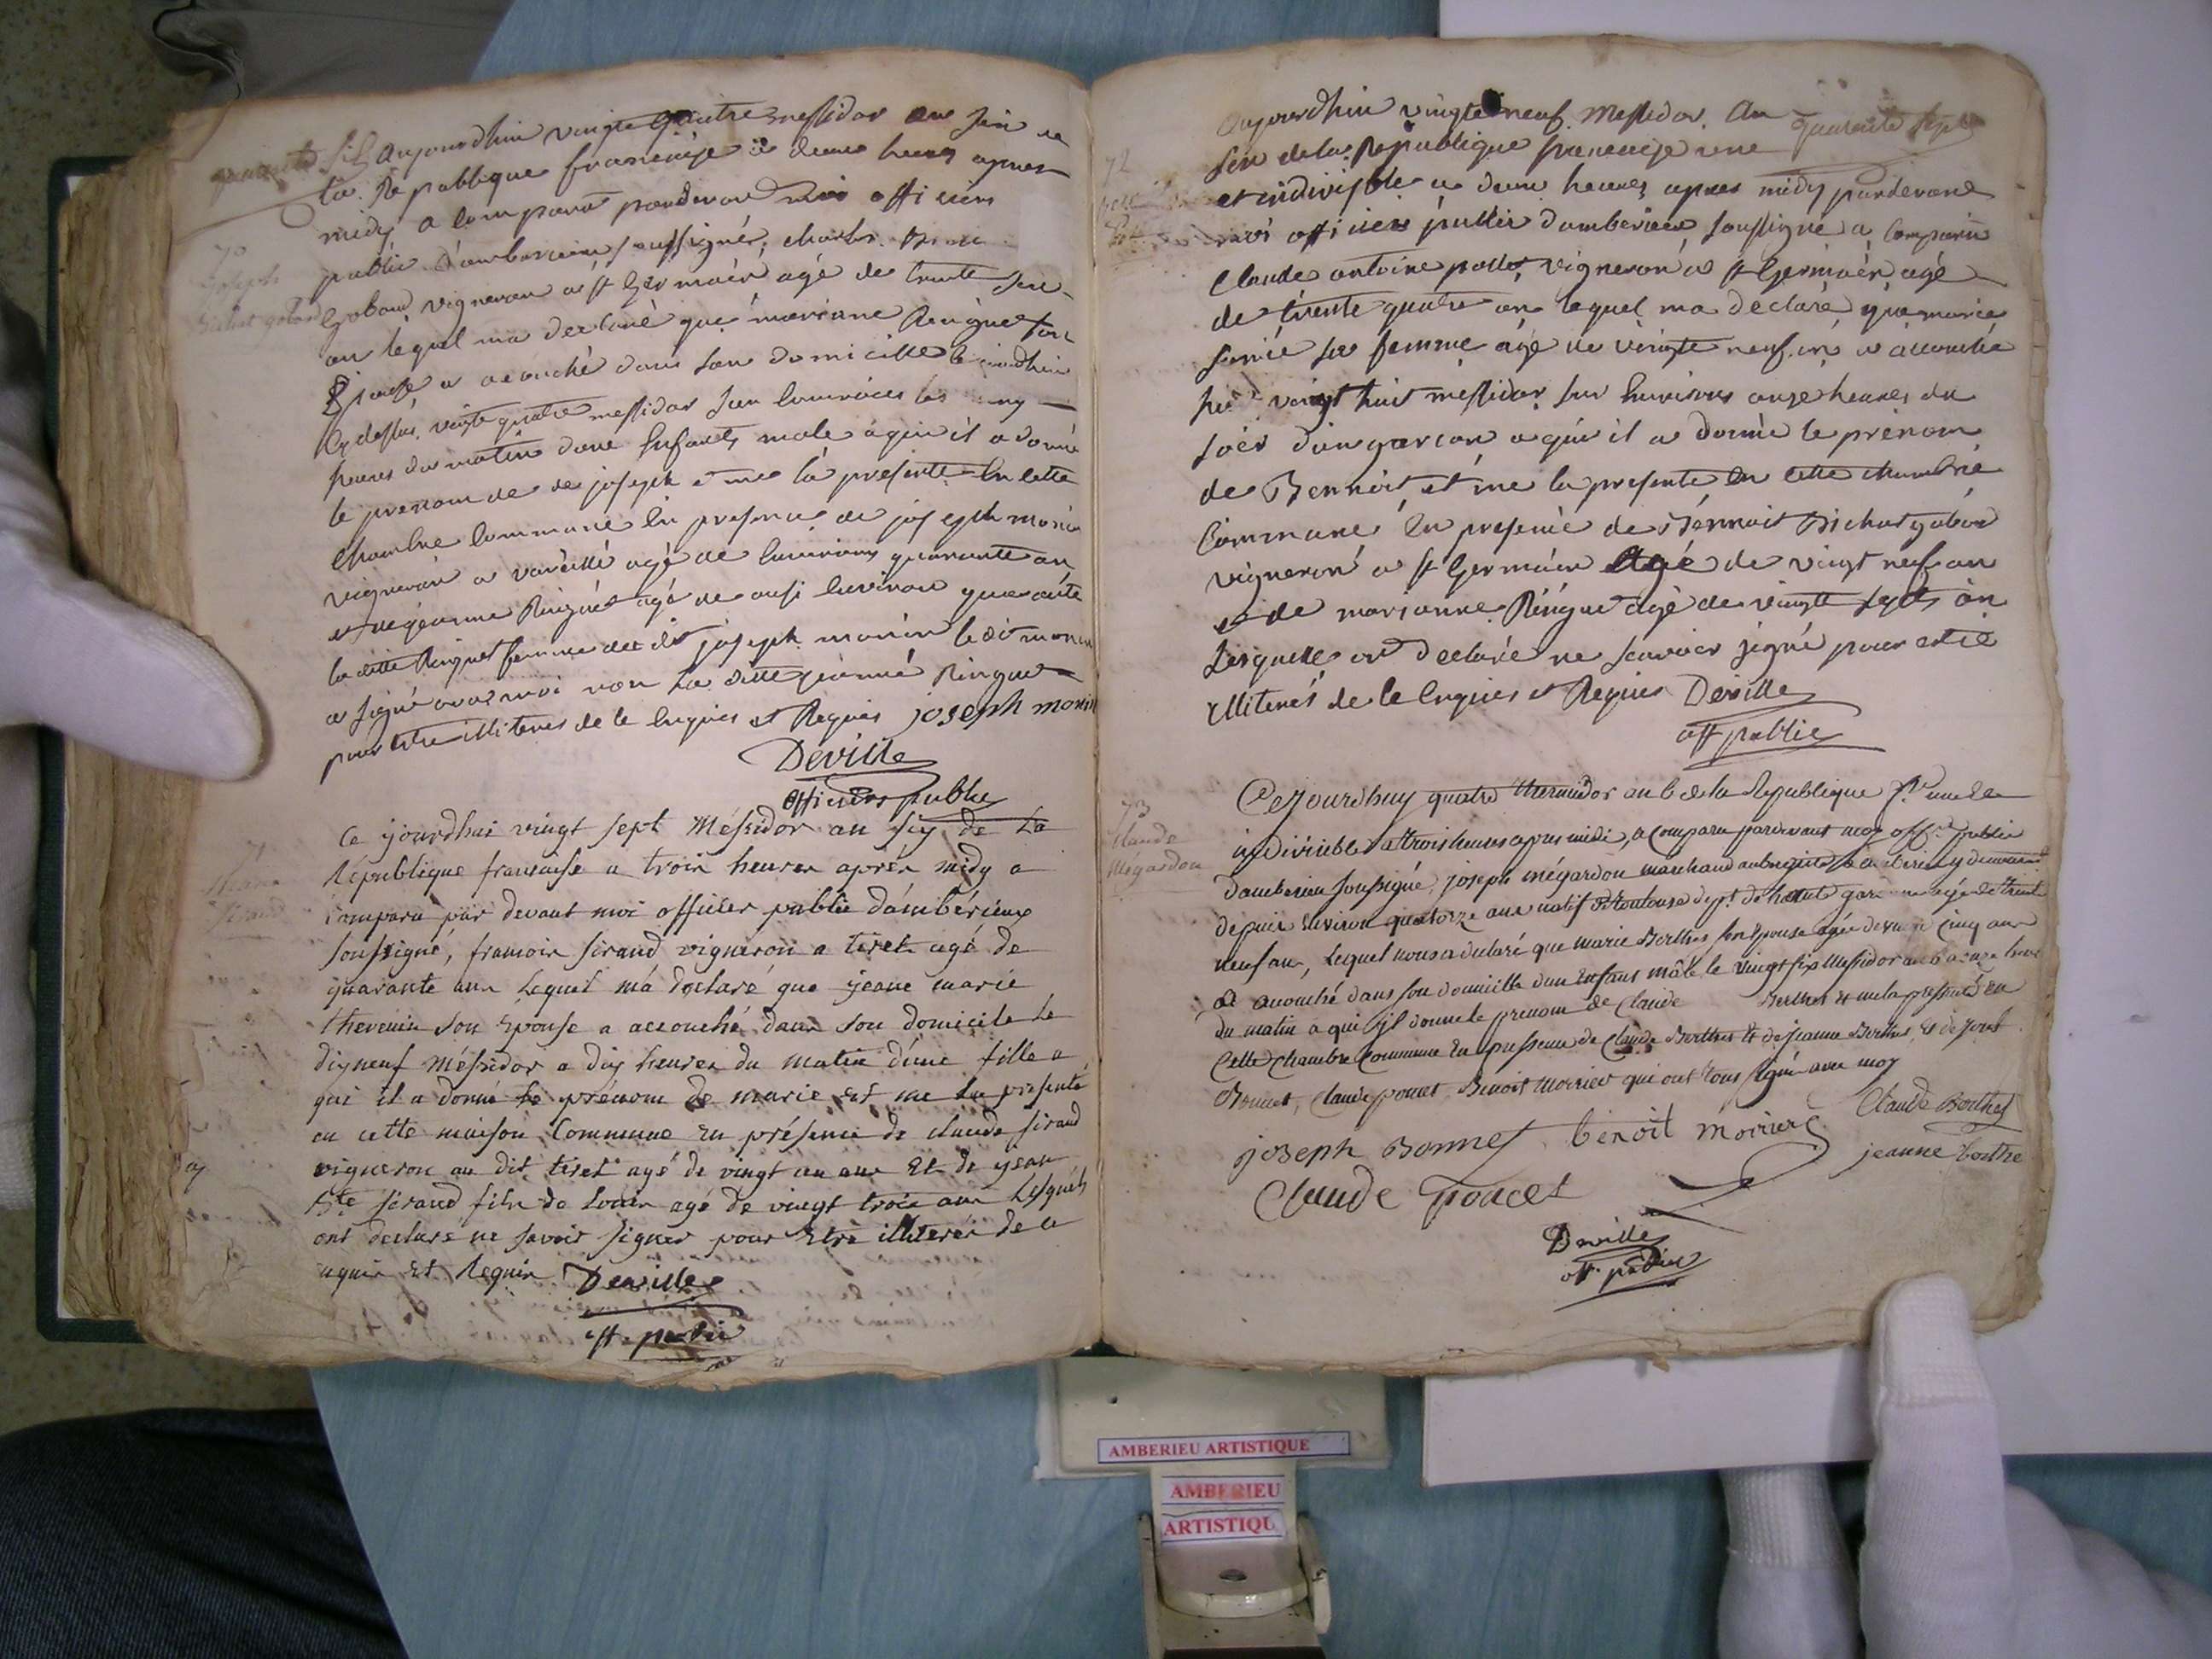 quarante six
Aujourdhui vingte quatre messidor an six de
la Republique francaise a deux heures apres
midy a comparu pardevant moi officiers
public d'amberieux soussigné, charles
70
joseph
Bichat gobard
Gobard vigneron a st Germain agé de trente
an lequel ma declaré que mariane Ringuet son
Epouse a acouché dans son domicille
cy dessus vingte quatre messidor sur lenvirons les
heures du matin dun Enfants male a qui il a donné
le prenom de de joseph et me la presenté En cette
chambre commune En presence de joseph monin
vigneron a vareille agé de lenvirons quarante an
et de jeanne Ringuet agé de ausi lenviron quarante
la ditte Ringuet femme du dit joseph monin le dit monin
a signé avac moi non la ditte jeanne Ringuet
pour Etre illiteres de le Enquies et Requies joseph monin
Deville
officiers public
71
Marie
sirand
Ce jourdhui vingt sept Méssidor an six de La
République francaise a trois heures aprés midy a
comparu par devant moi officier public d'ambérieux
soussigné, francois sirand vigneron a tiret agé de
quarante ans Lequel m'a déclaré que jeane marie
thevenin son Epouse a accouché dans son domicile Le
dixneuf méssidor a dix heures du matin d'une fille a
qui il a donné le prénom de marie et me La presenté
en cette maison Commune En présence de claude sirand
vigneron au dit tiret agé de vingt un ans Et de jean
Bte sirand fils de Louis agé de vingt trois ans Lesquels
ont declaré ne savoir signer pour Etre illiterés de ce
enquis Et Requis Deville
off. public
quarante sept
Aujourdhui vingte neuf Messidor An
72
six de la Republique francaise une
et indivisible a deux heures apres midy pardevant
moi officiers public damberieux soussigné a comparu
Claude antoine pollet vigneron a st Germain agé
de trente quatre an lequel ma declaré que marie
sa femme agé de vingte neuf an a acouché
hier vingt huit messidor sur lenvirons onze heures du
soir d'un garcon a qui il a donné le prenom
de Bennoit et me la presenté En cette chambre
Commune En presence de Bennoit Bichat gobard
vigneron a st Germain Agé de vingt neuf an
et de marianne Ringuet agé de vingte septs an
Lesquelle on declaré ne scavoir signé pour etre
illiterés de le Enquies et Requies Deville
off public
73
Claude
Mégardon
Cejourdhuy quatre thermidor an 6 de la Republique fse une Et
indivisible a trois heures apres midi, a comparu pardevant moy offer public
damberieu soussigné, joseph mégardon marchand aubergiste a amberieu y demeurant
depuis Environ quatorze ans natif de toulouse dept. de haute garonne agé de trente
neuf ans, Lequel nous a declaré que marie Berthet son Epouse agée de vingt cinq ans
a accouché dans son domicille d'un Enfant mâle le vingt six Messidor an 6 a onze heures
du matin a qui jl donne le prenom de Claude Berthet et me la presenté En
Cette chambre commune En pressence de Claude Berthet Et de jeanne Berthet, Et de joseph
Bonnet, Claude poncet, Benoit Moirier qui ont tous signé avec moy
Claude Berthet
joseph Bonnet benoit moirier
jeanne berthe
Claude poncet
Deville
off. public
AMBERIEU ARTISTIQUE
AMBERIEU
ARTISTIQU